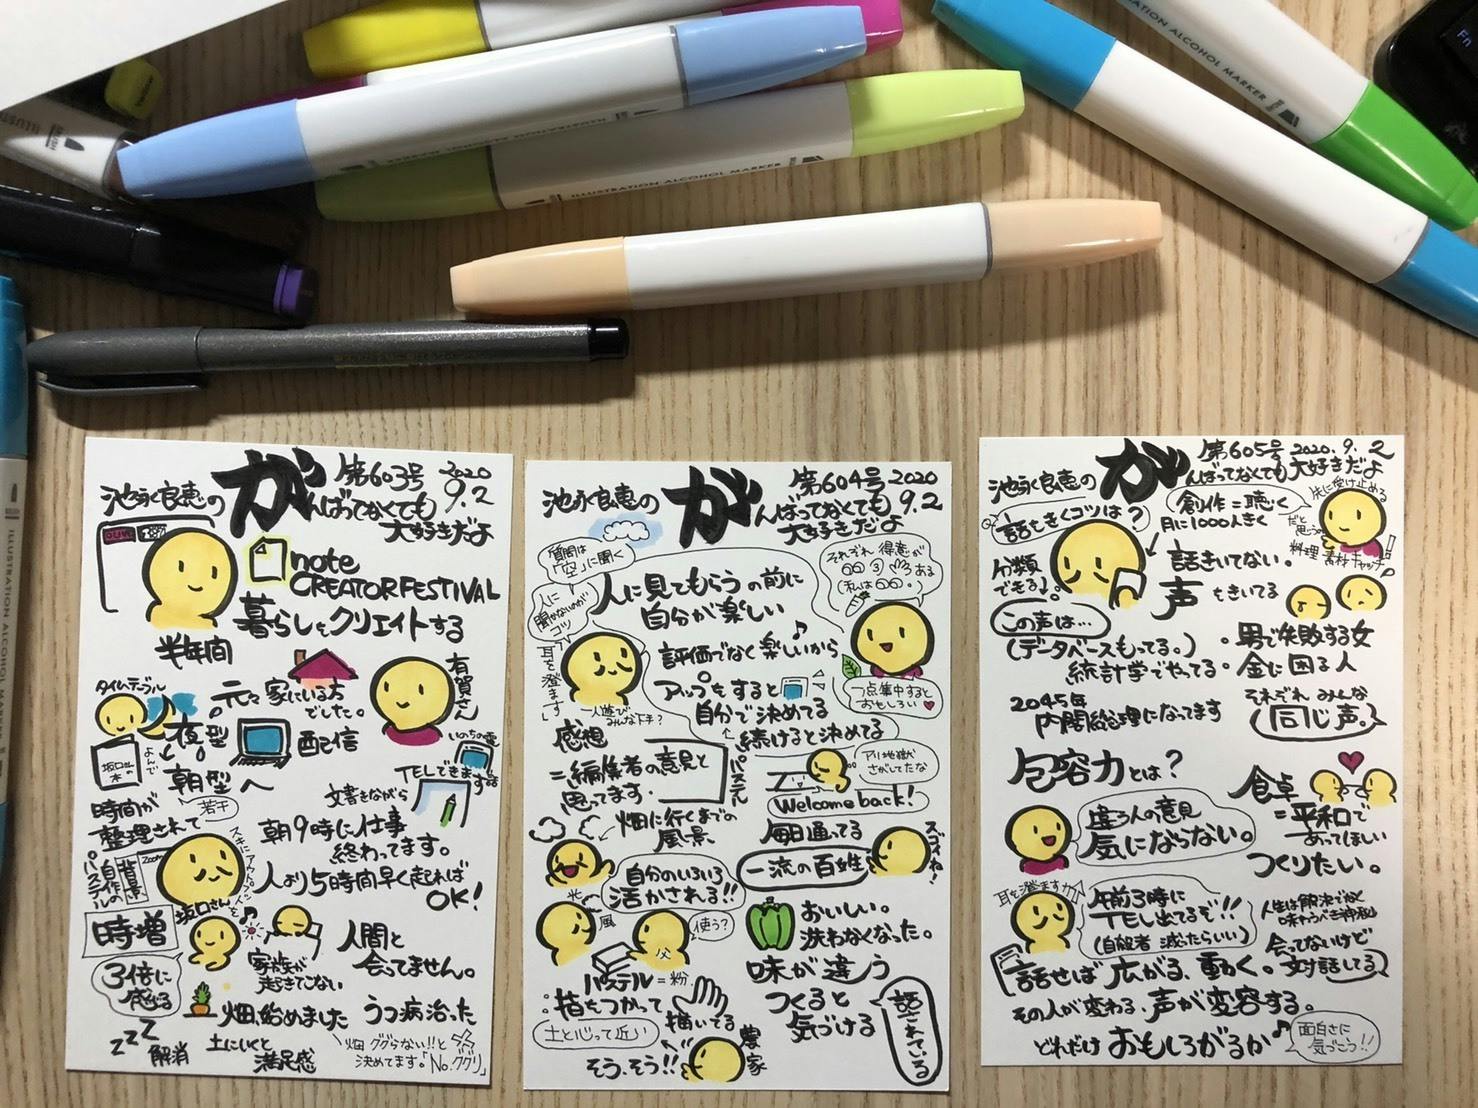 ILLUSTRATION ALCOHOL MARKER
ILLUSTRATION ALCOHOL MARKER
BRUSH
Fn
池永良恵の
がんばってなくても
大好きだよ
第603号 2020
9.2
note
CREATOR FESTIVAL
暮らしをクリエイトする
半年間
有賀さん
タイムテーブル
元々家にいる方
でした。
夜型
よんで
朝型へ
若干
配信
いのちの電話
TELできます
文書きながら
時間が
整理されて
朝9時に仕事
終わってます。
zoom
自作の
背景
パステル
人より5時間早く起れば
OK!
坂口さん
時増
3倍に
感る
家族が
起きてない
人間と
会ってません。
畑、始めました
うつ病治った
ZZZ
解消
土にいくと
満足感
畑 ググらない!!と
決めてます。「No.ググリ」
池永良恵の
がんばってなくても
大好きだよ
第604号 2020
9.2
質問は
「空」に聞く
人に
聞かないのが
コツ
耳を澄ます
人に見てもらうの前に
自分が楽しい
それぞれ得意が
ある
(私は
評価でなく楽しいから
アップもすると
自分で決めてる
続けると決めてる
1点集中すると
おもしろい
一人遊び
みんな下手?
感想
=編集者の意見と
思ってます.
パステル
アリ地獄
さがしてたな
Welcome back!
畑に行くまでの
風景
毎日通ってる
一流の百姓
スゴイね!
自分のいろいろ
活かされる!!
光
風
父
使う?
おいしい。
洗わなくなった。
パステル=粉.
:指をつかって
描いてる
土と心って近い
味が違う
つくると
気づける
そう、そう!!
農家
話されている
池永良恵の
がんばってなくても
大好きだよ
第605号 2020.9.2
話をきくコツは?
創作=聴く
月に1000人きく
先に受け止める
だと
思う。
料理 素材キャッチ
分類
できる
話きいてない。
声をきいてる
この声は…
(データベースもってる。)
統計学でやってる
・男で失敗する女
・金に困る人
2045年
内閣総理になってます
それぞれ みんな
(同じ声。)
包容力とは?
食卓
=平和で
あってほしい
つくりたい。
違う人の意見
気にならない。
耳を澄ます力↑
午前3時に
TEL出てるぞ!!
(自殺者 減ったらいい)
人生は解決でなく
味わうべき神秘
会ってないけど
対話してる
話せば 広がる、動く。
その人が変わる.声が変容する。
どれだけおもしろがるか
面白さに
気づこう!!